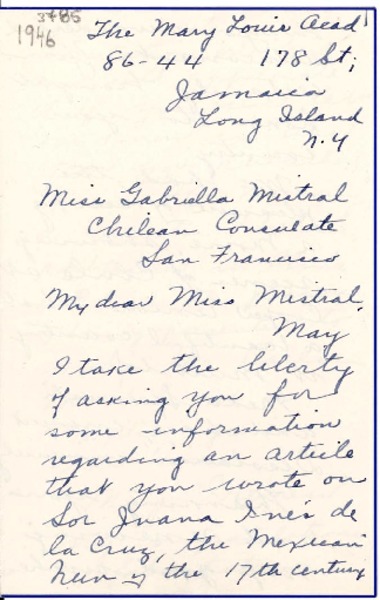 3785
1946
The Mary Louis Acad
86-44 178 St,
Jamaica
Long Island
N.Y
Miss Gabriella Mistral
Chilean Consulate
San Francisco
My dear Miss Mistral,
May
I take the liberty
of asking you for
some information
regarding an article
that you wrote on
Sor Juana Inés de
la Cruz, the Mexican
Nun of the 17th century